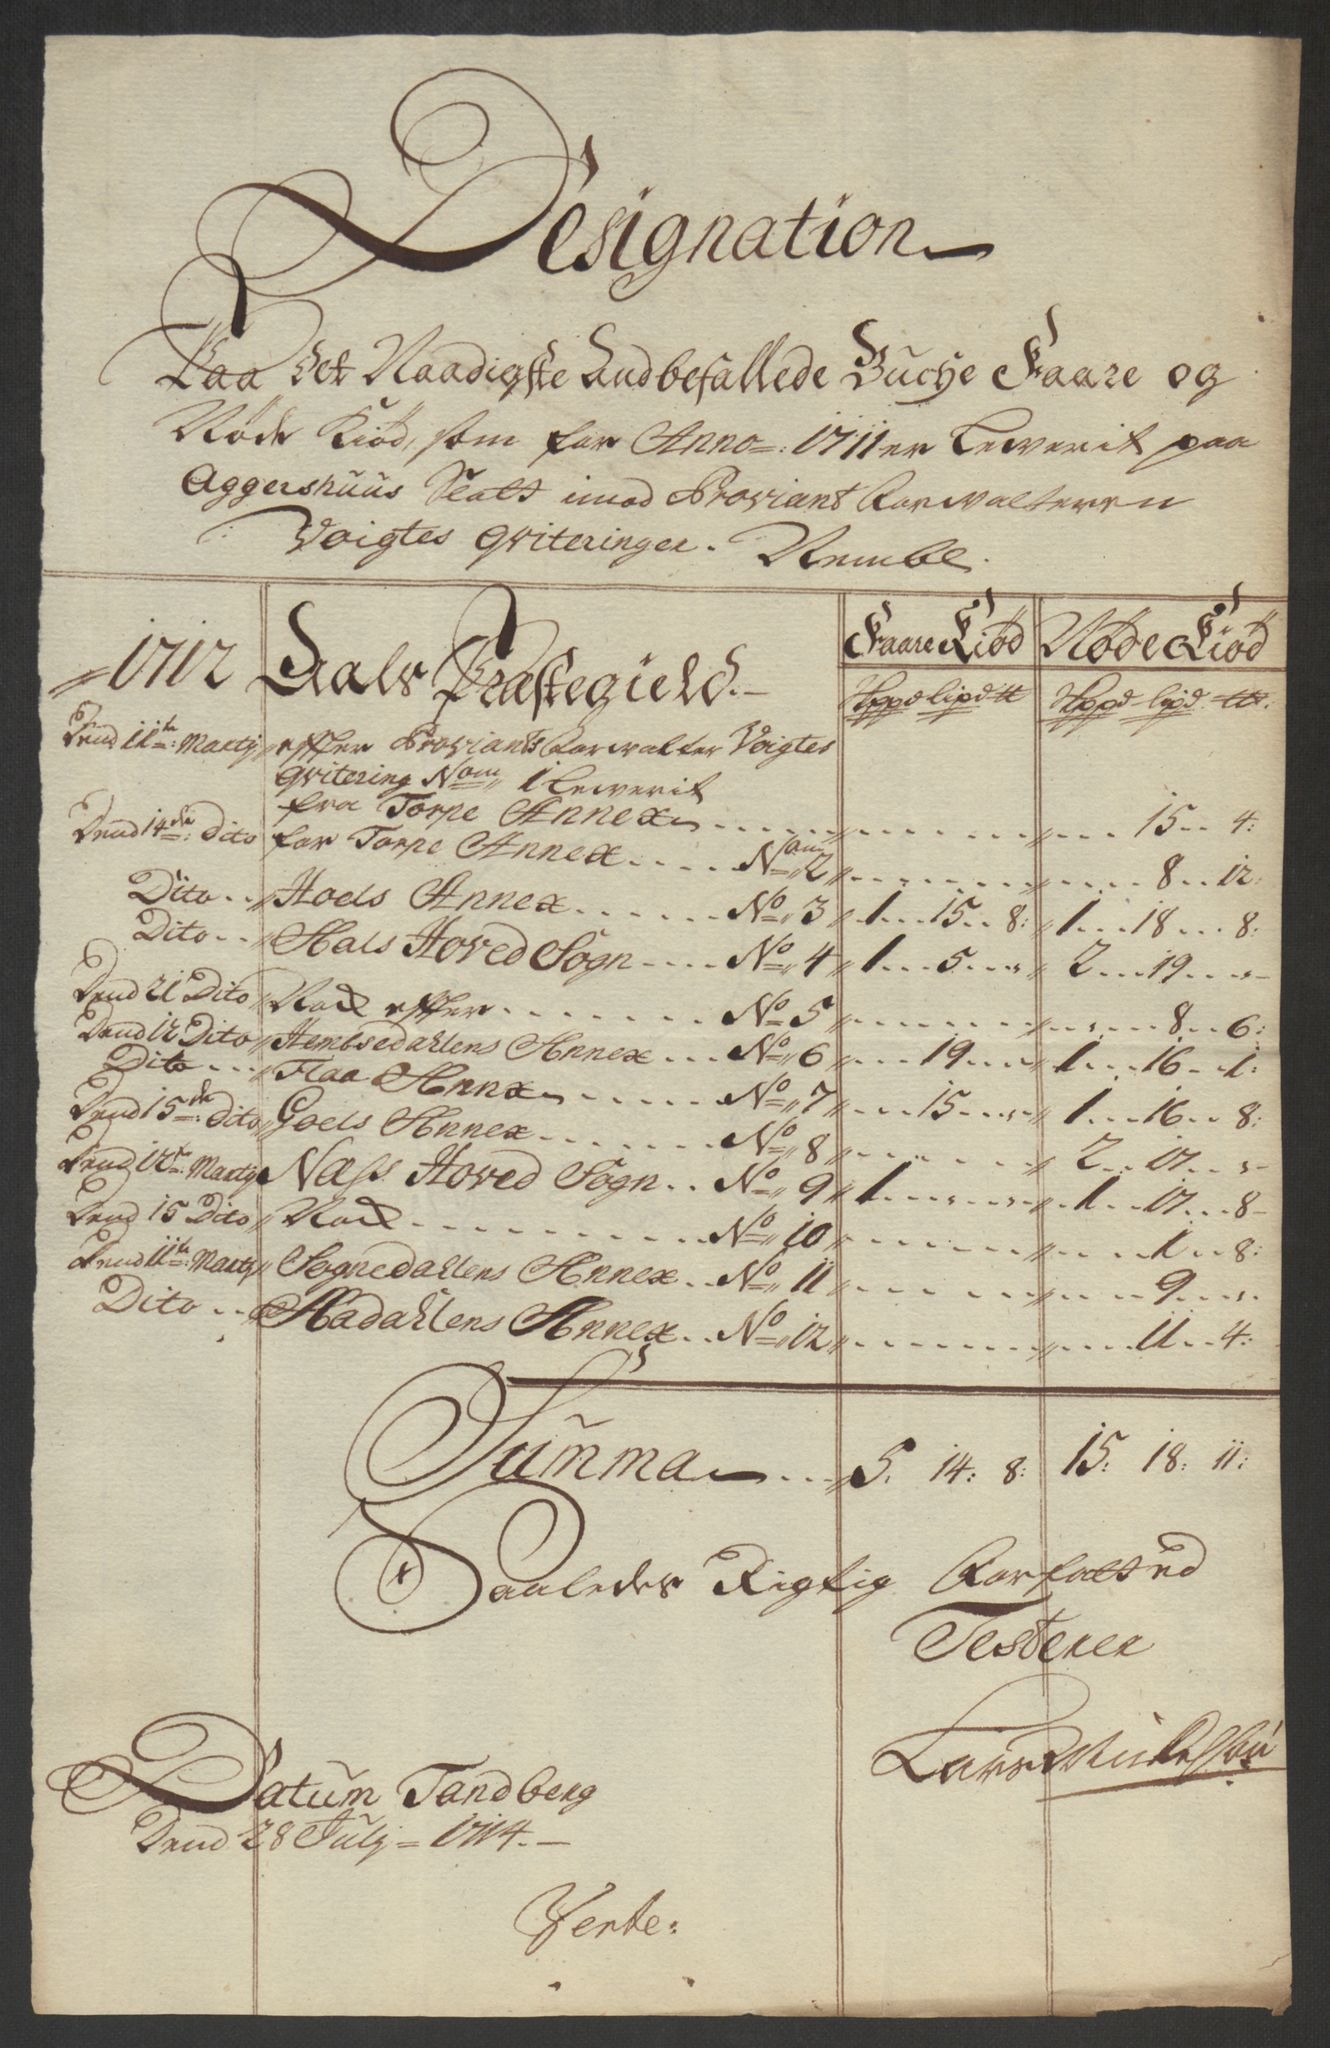 Designation
Paa Det Naadigste Andbefallede Bucke Faare og
Nøde Kiød, som for Anno=: 1711 er Lewerit paa
Aggershuus Slott imod Proviant Forwalteren
Voigtes qviteringer. Nembl.
1712 Aals Præstegield.— Faare Kiød Nøde Kiød
Skppd lipd ℔ Skppd lipd ℔.
Dend 11te: Martj effter Proviants Forwalter Voigtes
qvitering Nom 1 Lewerit
fra Torpe Annex 15 4:
Dend 14de: Dito for Torpe Annex Nom 2 8 12:
Dito Hoels Annex No 3 1 15 8: 1 18 8:
Dito Aals Hoved Sogn No 4 1 5 - 2 19 -
Dend 21 Dito Nock effter No 5 8 6:
Dend 12 Dito Hembsedahlens Annex No 6 19 - 1 16 1:
Dito Flaa Annex No 7 15 - 1 16 8:
Dend 15de: Dito Goels Annex No 8 2 17 -
Dend 12te: Martj Næss Hoved Sogn No 9 1 - - 1 17 8
Dend 15 Dito Nock No 10 1 8:
Dend 11te: Martj Sognedahlens Annex No 11 9 -
Dito Aadahlens Annex No 12 11 4:
Summa 5. 14: 8: 15: 18: 11:
Saaledes Rigtig Forfatted
Testerer
Datum Tandberg
Dend 28 Julj = 1714.—
Verte: